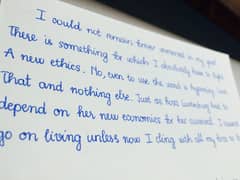 I could not remain forever immersed in my grief
There is something for which I absolutely have to fight
A new ethics. No, even to use the word is beginning
That and nothing else. Just as Rosa Luxemburg had to
depend on her new economics for her survival. I cannot
go on living unless now I cling with all my force to